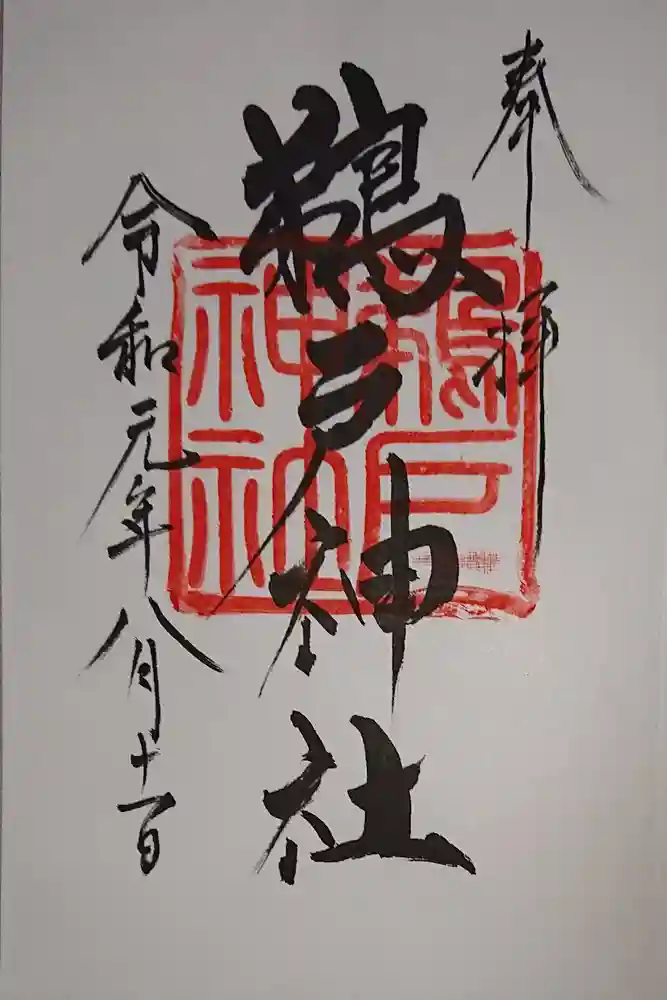 奉拝
鵜戸神社
鵜戸神社
令和元年八月十一日